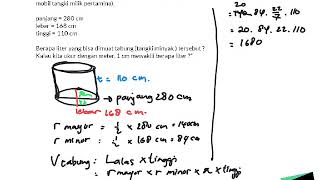 mobil tangki milik pertamina).
panjang = 280 cm
lebar = 168 cm
tinggi = 110 cm
Berapa liter yang bisa dimuat tabung (tangki minyak) tersebut ?
Kalau kita ukur dengan meter, 1 cm mewakili berapa liter ?"
t = 110 cm.
panjang 280 cm
lebar 168 cm.
r mayor = ½ × 280 cm = 140 cm
r minor = ½ × 168 cm = 84 cm
V tabung = Lalas × tinggi
= r mayor × r minor × π × tinggi
20
= 140. 84. 22/7 . 110
= 20. 84. 22. 110
= 1680